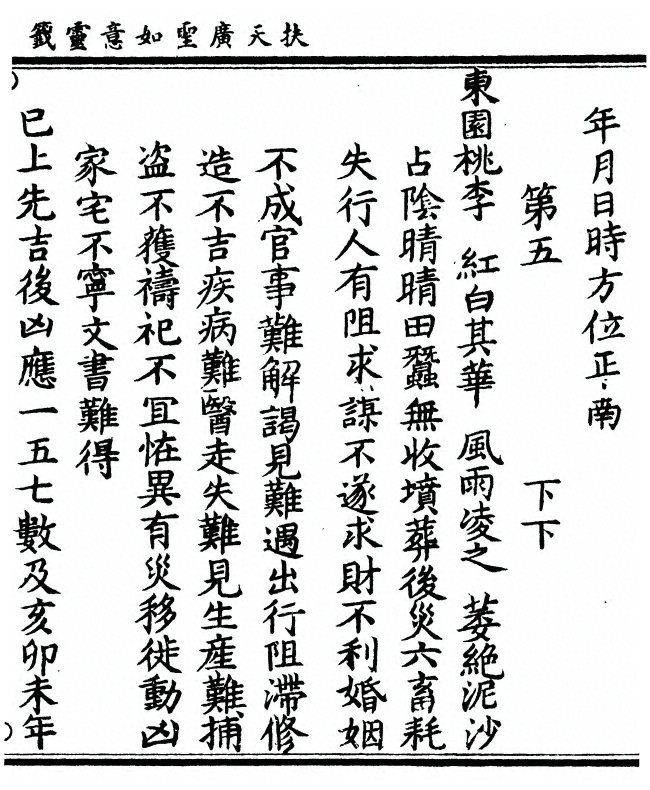 扶天廣聖如意靈籤
年月日時方位正南
第五 下下
東園桃李 紅白其華 風雨凌之 萎絶泥沙
占陰晴晴田蠶無收墳葬後災六畜耗
失行人有阻求謀不遂求財不利婚姻
不成官事難解謁見難遇出行阻滯修
造不吉疾病難醫走失難見生産難捕
盗不獲禱祀不冝恠異有災移徙動凶
家宅不寧文書難得
已上先吉後凶應一五七數及亥卯未年